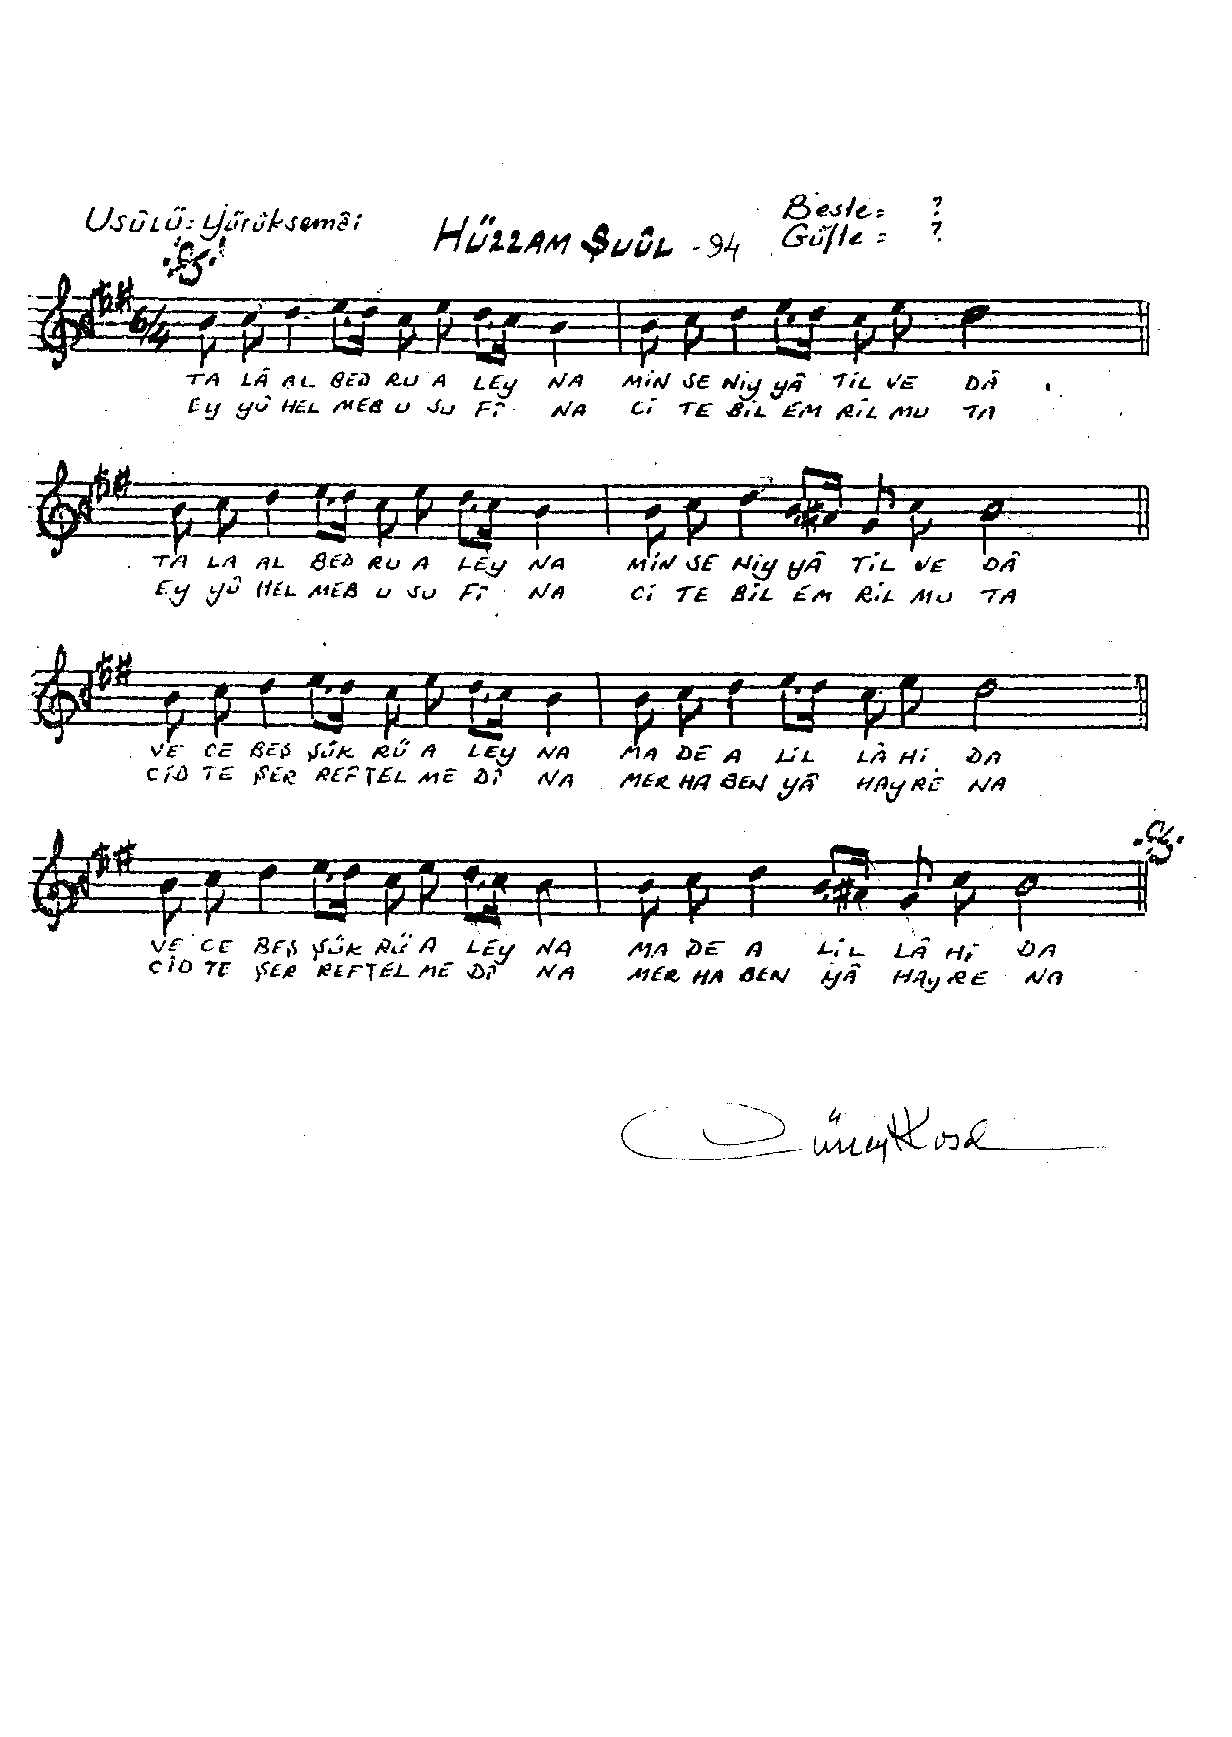 Usûlü: Yürüksemâi
HÜZZAM ŞUÛL - 94
Beste: ?
Güfte: ?
6/4
TA LÂ AL BED RU A LEY NA MİN SE NİY YÂ TİL VE DÂ
EY YÛ HEL MEB U SU FÎ NA Cİ TE BİL EM RİL MU TA
TA LA AL BED RU A LEY NA MİN SE NİY YÂ TİL VE DÂ
EY YÛ HEL MEB U SU FÎ NA Cİ TE BİL EM RİL MU TA
VE CE BEŞ ŞÜK RÜ A LEY NA MA DE A LİL LÂ Hİ DA
CİD TE ŞER REFTEL ME DÎ NA MER HA BEN YÂ HAY RE NA
VE CE BEŞ ŞÜK RÜ A LEY NA MA DE A LİL LÂ Hİ DA
CİD TE ŞER REFTEL ME DÎ NA MER HA BEN YÂ HAY RE NA
Cüneyt Kosal